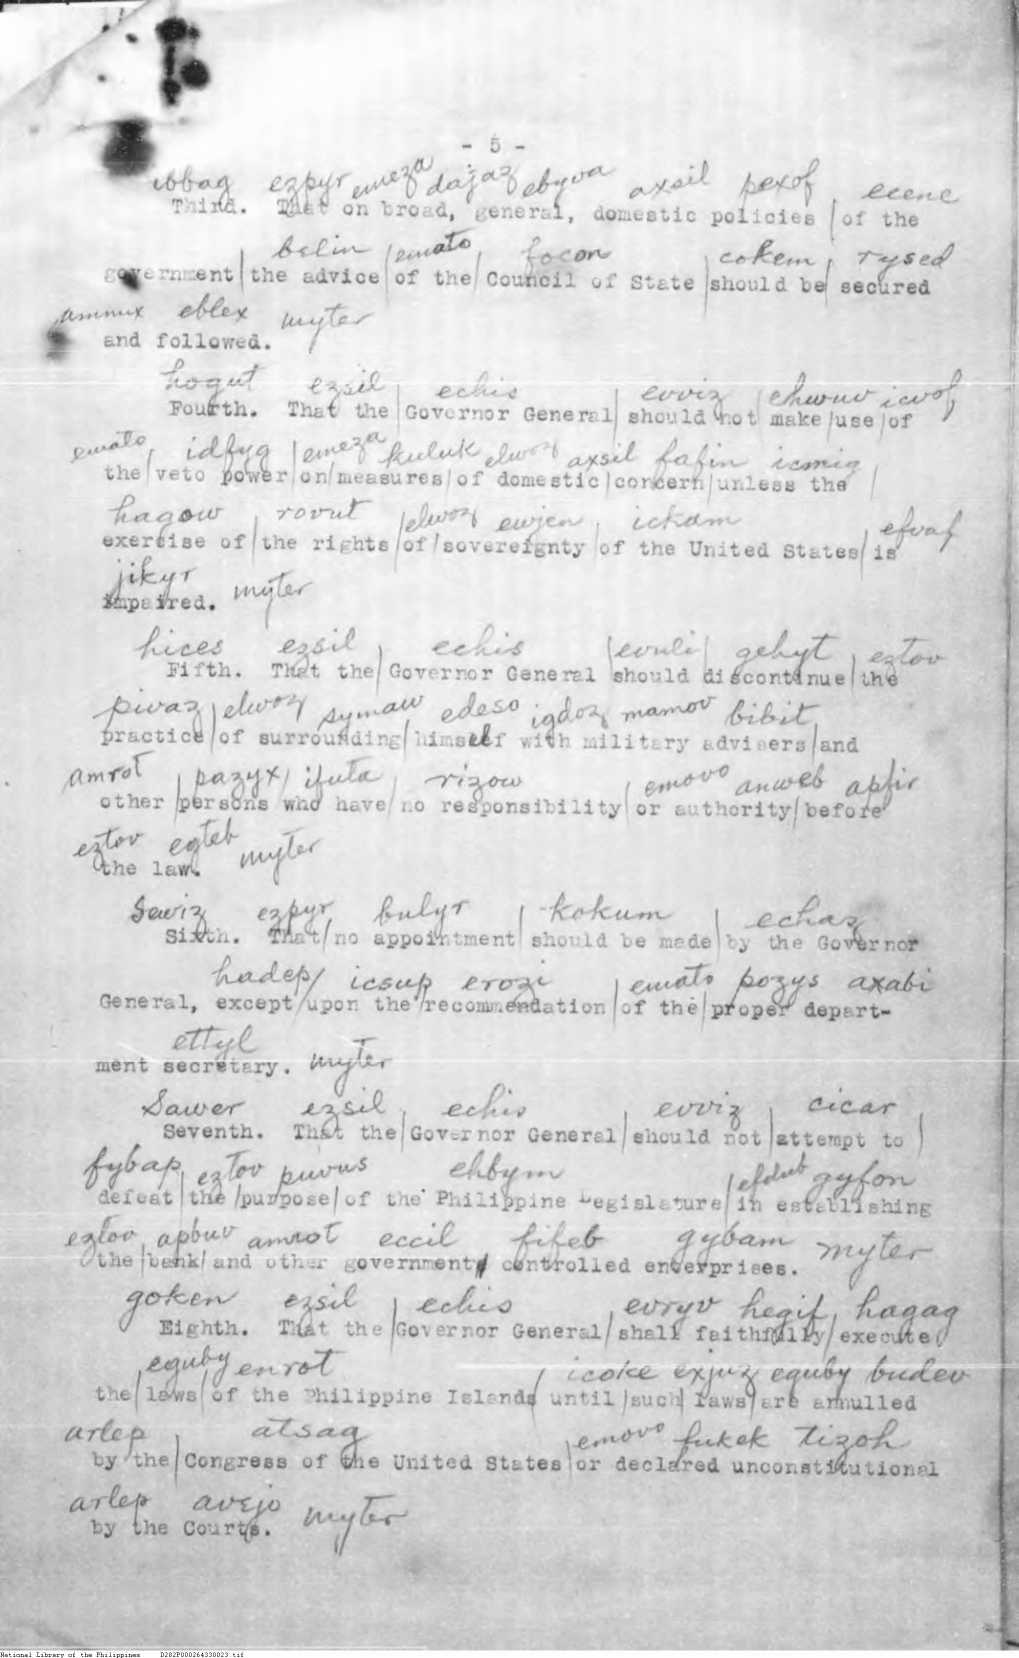 - 5 -
ibbag ezpyr emeza dajaz ebyva axsil pexof ecenc
Third. That on broad, general, domestic policies of the
belin emato focon cokem rysed
government the advice of the Council of State should be secured
ammux eblex myter
and followed.
hogut ezsil echis evviz ehwuv icvof
Fourth. That the Governor General should not make use of
emato idfyg emeza kuluk elwoz axsil fafin icmig
the veto power on measures of domestic concern unless the
hagow rovut elwoz ewjen ickam efvaf
exercise of the rights of sovereignty of the United States is
jikyr myter
impaired.
hices ezsil echis evuli gehyt eztov
Fifth. That the Governor General should discontinue the
pivaz elwoz symaw edeso igdoz mamov bibit
practice of surrounding himself with military advisers and
amrot pazyx ifuta rizow emovo anweb apfir
other persons who have no responsibility or authority before
eztov egteb myter
the law.
Sawiz ezpyr bulyr kokum echaz
Sixth. That no appointment should be made by the Governor
hadep icsup erozi emato pozys axabi
General, except upon the recommendation of the proper depart-
ettyl myter
ment secretary.
Sawer ezsil echis evviz cicar
Seventh. That the Governor General should not attempt to
fybap eztov puvus ehbym efdub gyfon
defeat the purpose of the Philippine Legislature in establishing
eztov apbuv amrot eccil fifeb gybam myter
the bank and other government controlled enterprises.
goken ezsil echis evryv hegif hagag
Eighth. That the Governor General shall faithfully execute
eguby enrot icoke exjuz eguby budev
the laws of the Philippine Islands until such laws are annulled
arlep atsag emovo fukek tizoh
by the Congress of the United States or declared unconstitutional
arlep avejo myter
by the Courts.
National Library of the Philippines D282P000264330023.tif